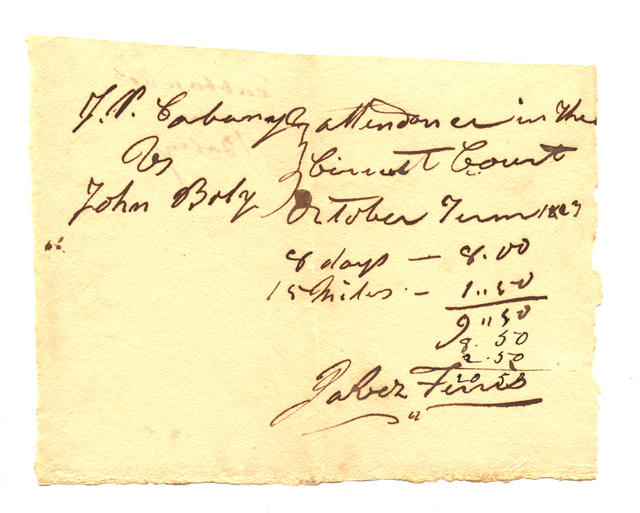 J. P. Cabany attendance in the
vs Circuit Court
John Boly October Term 1823
8 days — 8.00
15 Miles — 1.50
9.50
8.50
2.50
20.50
Jabez Ferris